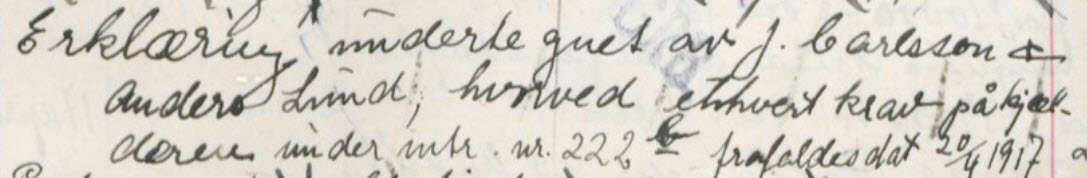 Erklæring, undertegnet av J. Carlsson &
Anders Lund, hvorved ethvert krav på kjæl-
deren under mtr. nr. 222 b frafaldes dat 20/4 1917